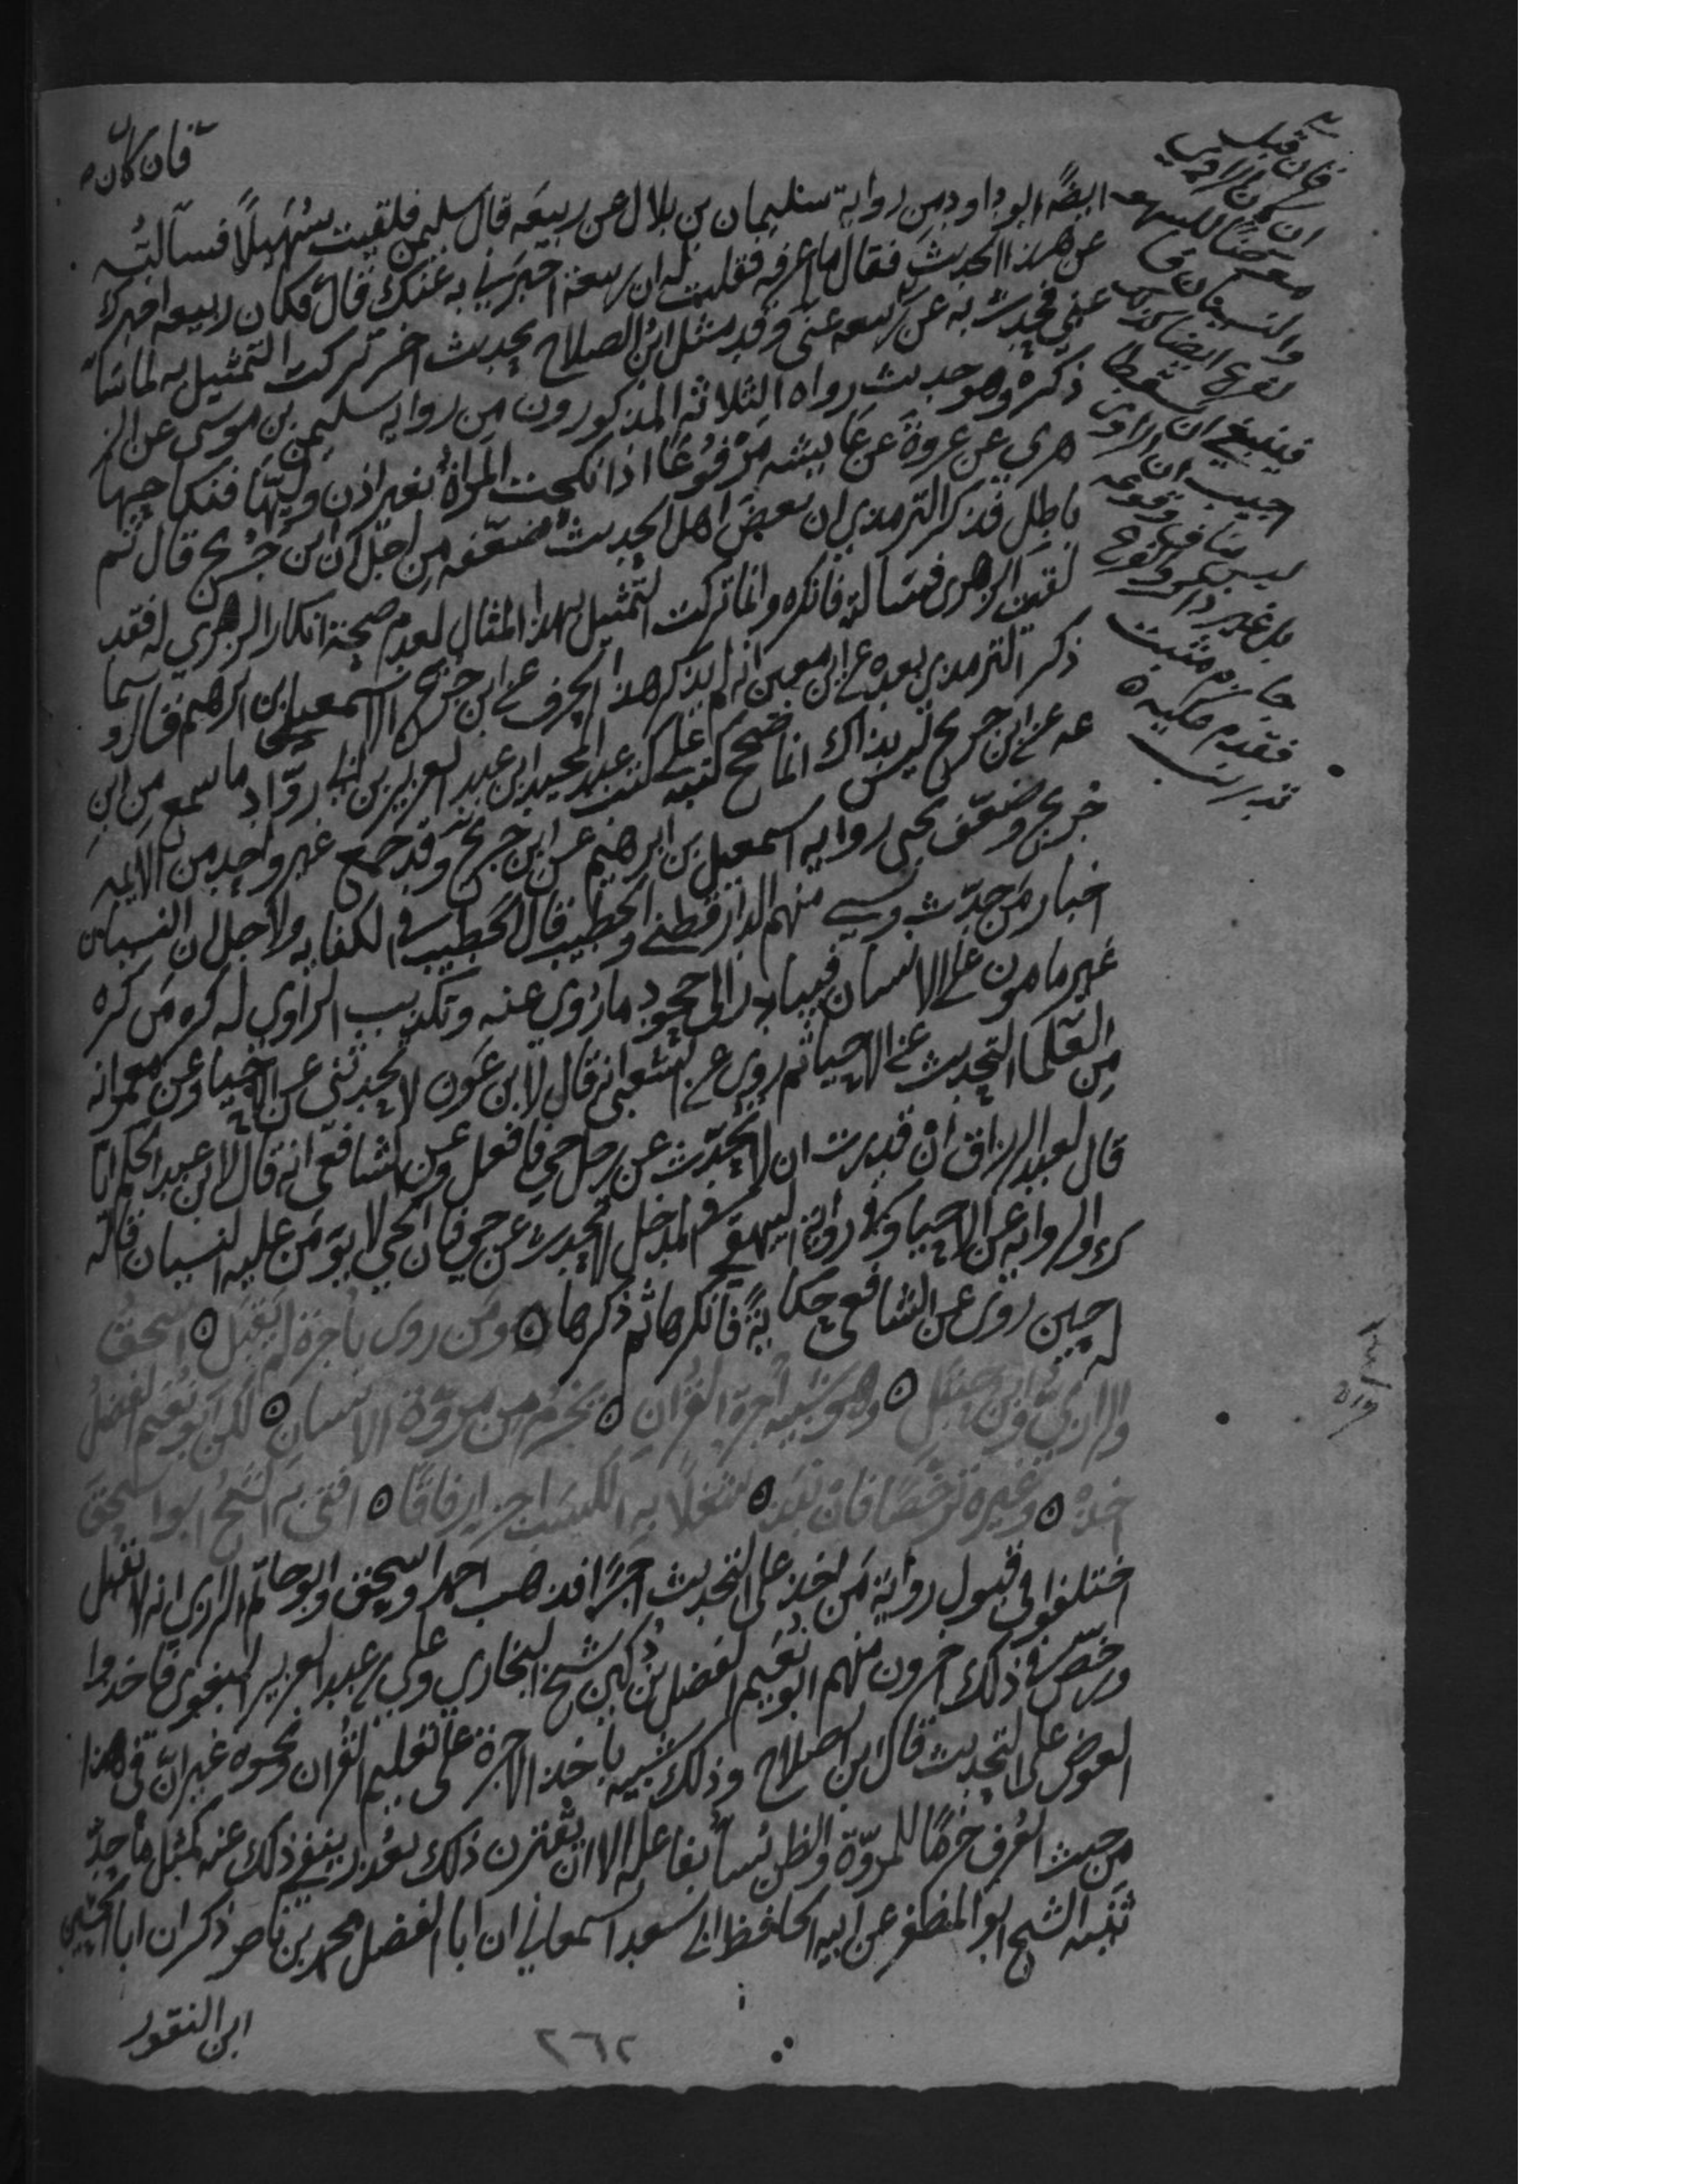 فان كان
ايضًا ابو داود من رواية سليمان بن بلال عن ربيعة قال سليمن فلقيت سُهَيلاً فسألته
عن هذا الحديث فقال ما اعرفه فقلت له ان ربيعة اخبرني به عنك قال فكان ربيعة اخبرك
عني فحدث به عن ربيعه عني وقد مثل ابن الصلاح بحديث اخر تركت التمثيل به لما سا
ذكره وهو حديث رواه الثلاثة المذكورون من رواية سليمن بن موسى عن الز
هري عن عروة عن عايشه مَرْفُوعًا اذا نكحت المراة بغير اذن وليّها فنكاحها
باطل فذكر الترمذي ان بعض اهل الحديث ضعّفه من اجل ان ابن جريج قال ثم
لقيت الزهري فسالته فانكره وانما تركت التمثيل بهذا المثال لعدم صحة انكار الزهري له فقد
ذكر الترمذي بعده عن ابن معين انه لم يذكر هذا الحرف عن ابن جريج الا اسمعيل بن ابرهيم قال و سما
عه عن ابن جريج ليس بذاك انما صحح كتبه على كتب عبد المجيد ابن عبد العزيز بن ابي روّاد ما سمع من ابن
جريج وضعّف يحيى رواية اسمعيل بن ابرهيم عن ابن جريج وقد جمع غير واحد من الايمه
اخبار من حدّث ونسي منهم الدارقطني والخطيب قال الخطيب في الكفايه ولاجل ان النسيان
غير مامون على الانسان فيبادر الى جحود ما رُوي عنه وتكذيب الراوي له كره من كره
من العلما التحديث عن الاحيا ثم روى عن الشعبي انه قال لابن عون لا تحدثني عن الاحيا وعن معمر انه
قال لعبد الرزاق ان قدرت ان لا تحدّث عن رجل حي فافعل وعن الشافعي انه قال لابن عبد الحكم اياك
والرواية عن الاحيا وفي رواية البيهقي في المدخل لا تحدث عن حي فان الحي لا يؤمن عليه النسيان قاله
له حين روى عن الشافعي حكايةً فانكرها ثم ذكرها ه ومن روى باجرة لم يقبل ه اسحق
والرازيُّ وابن حنبل ه وهو شبيه اجرة القران ه يخرم من مروّة الانسان ه لكن ابو نعيم الفضل
اخذ ه وغيره ترخّصًا فان نبذ ه شغلا به الكسب اجز ارفاقا ه افتى به الشيخ ابو اسحق
اختلفوا في قبول رواية من اخذ على التحديث اجرًا فذهب احمد واسحق وابو حاتم الرازي انه لا تقبل
ورخّص في ذلك اخرون منهم ابو نعيم الفضل بن دُكين شيخ البخاري وعلي بن عبد العزيز البغوي فاخذوا
العوض على التحديث قال ابن الصلاح وذلك شبيه باخذ الاجرة على تعليم القران ونحوه غير ان في هذا
من حيث العرف خرمًا للمروّة والظن يُسأ بفاعله الا ان يقترن ذلك بعذر ينفي ذلك عنه كمثل ما حدّ
ثنيه الشيخ ابو المظفر عن ابيه الحافظ ابي سعد السمعاني ان ابا الفضل محمد بن ناصر ذكر ان ابا الحسين
ابن النقور
٢٦٢
فان قيل
ان كان الراوي
معرضًا للسهو
والنسيان فا
لفرع ايضا كذلك
فينبغي ان يسقطا
اجيب ان الراوي
ليس بناف وقوعه
بل غير ذاكر والفرع
جازم مثبت
فقدم عليه ه
تدريب